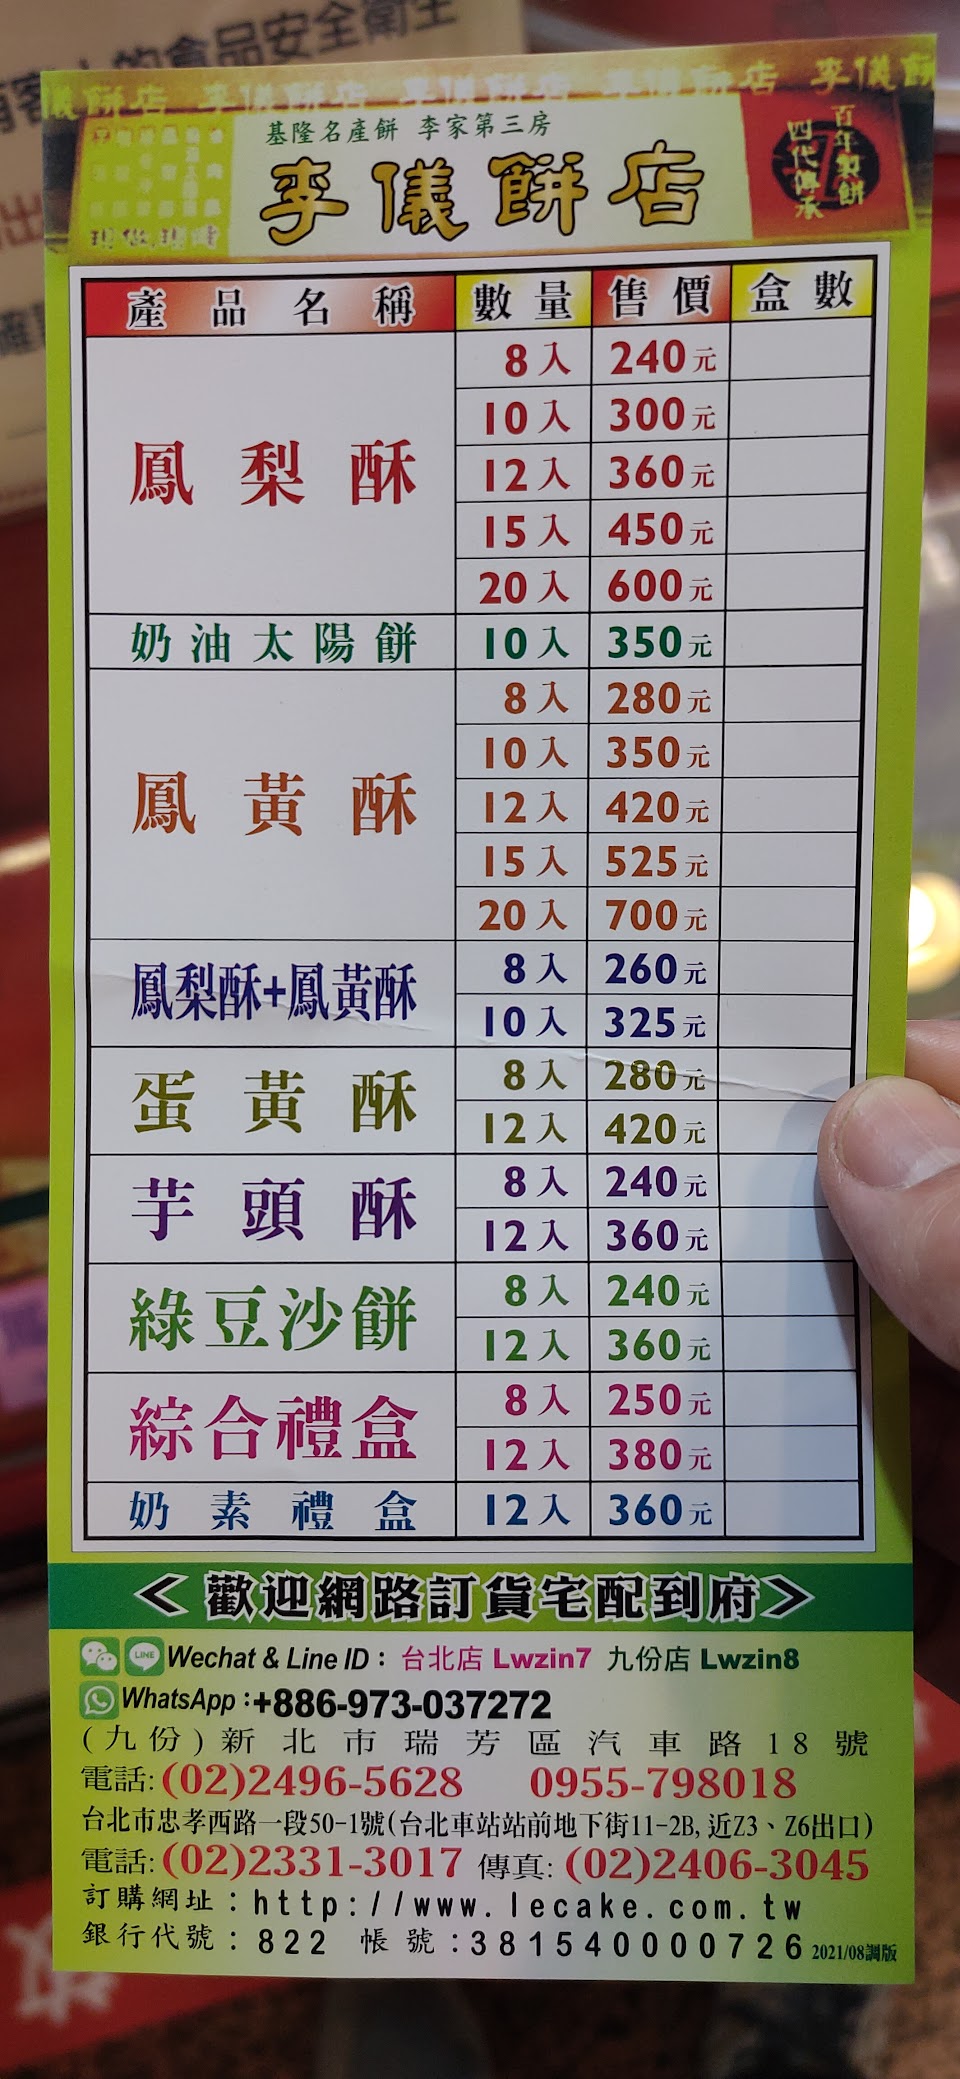 的食品安全衛生
李儀餅店 李儀餅店 李儀餅店 李儀餅
基隆名產餅 李家第三房
李儀餅店
百年製餅
四代傳承
產品名稱 數量 售價 盒數
鳳梨酥 8入 240元
10入 300元
12入 360元
15入 450元
20入 600元
奶油太陽餅 10入 350元
鳳黃酥 8入 280元
10入 350元
12入 420元
15入 525元
20入 700元
鳳梨酥+鳳黃酥 8入 260元
10入 325元
蛋黃酥 8入 280元
12入 420元
芋頭酥 8入 240元
12入 360元
綠豆沙餅 8入 240元
12入 360元
綜合禮盒 8入 250元
12入 380元
奶素禮盒 12入 360元
<歡迎網路訂貨宅配到府>
LINE Wechat & Line ID：台北店 Lwzin7 九份店 Lwzin8
WhatsApp：+886-973-037272
(九份)新北市瑞芳區汽車路18號
電話:(02)2496-5628 0955-798018
台北市忠孝西路一段50-1號(台北車站站前地下街11-2B,近Z3、Z6出口)
電話:(02)2331-3017 傳真:(02)2406-3045
訂購網址：http://www.lecake.com.tw
銀行代號：822 帳號:381540000726 2021/08調版